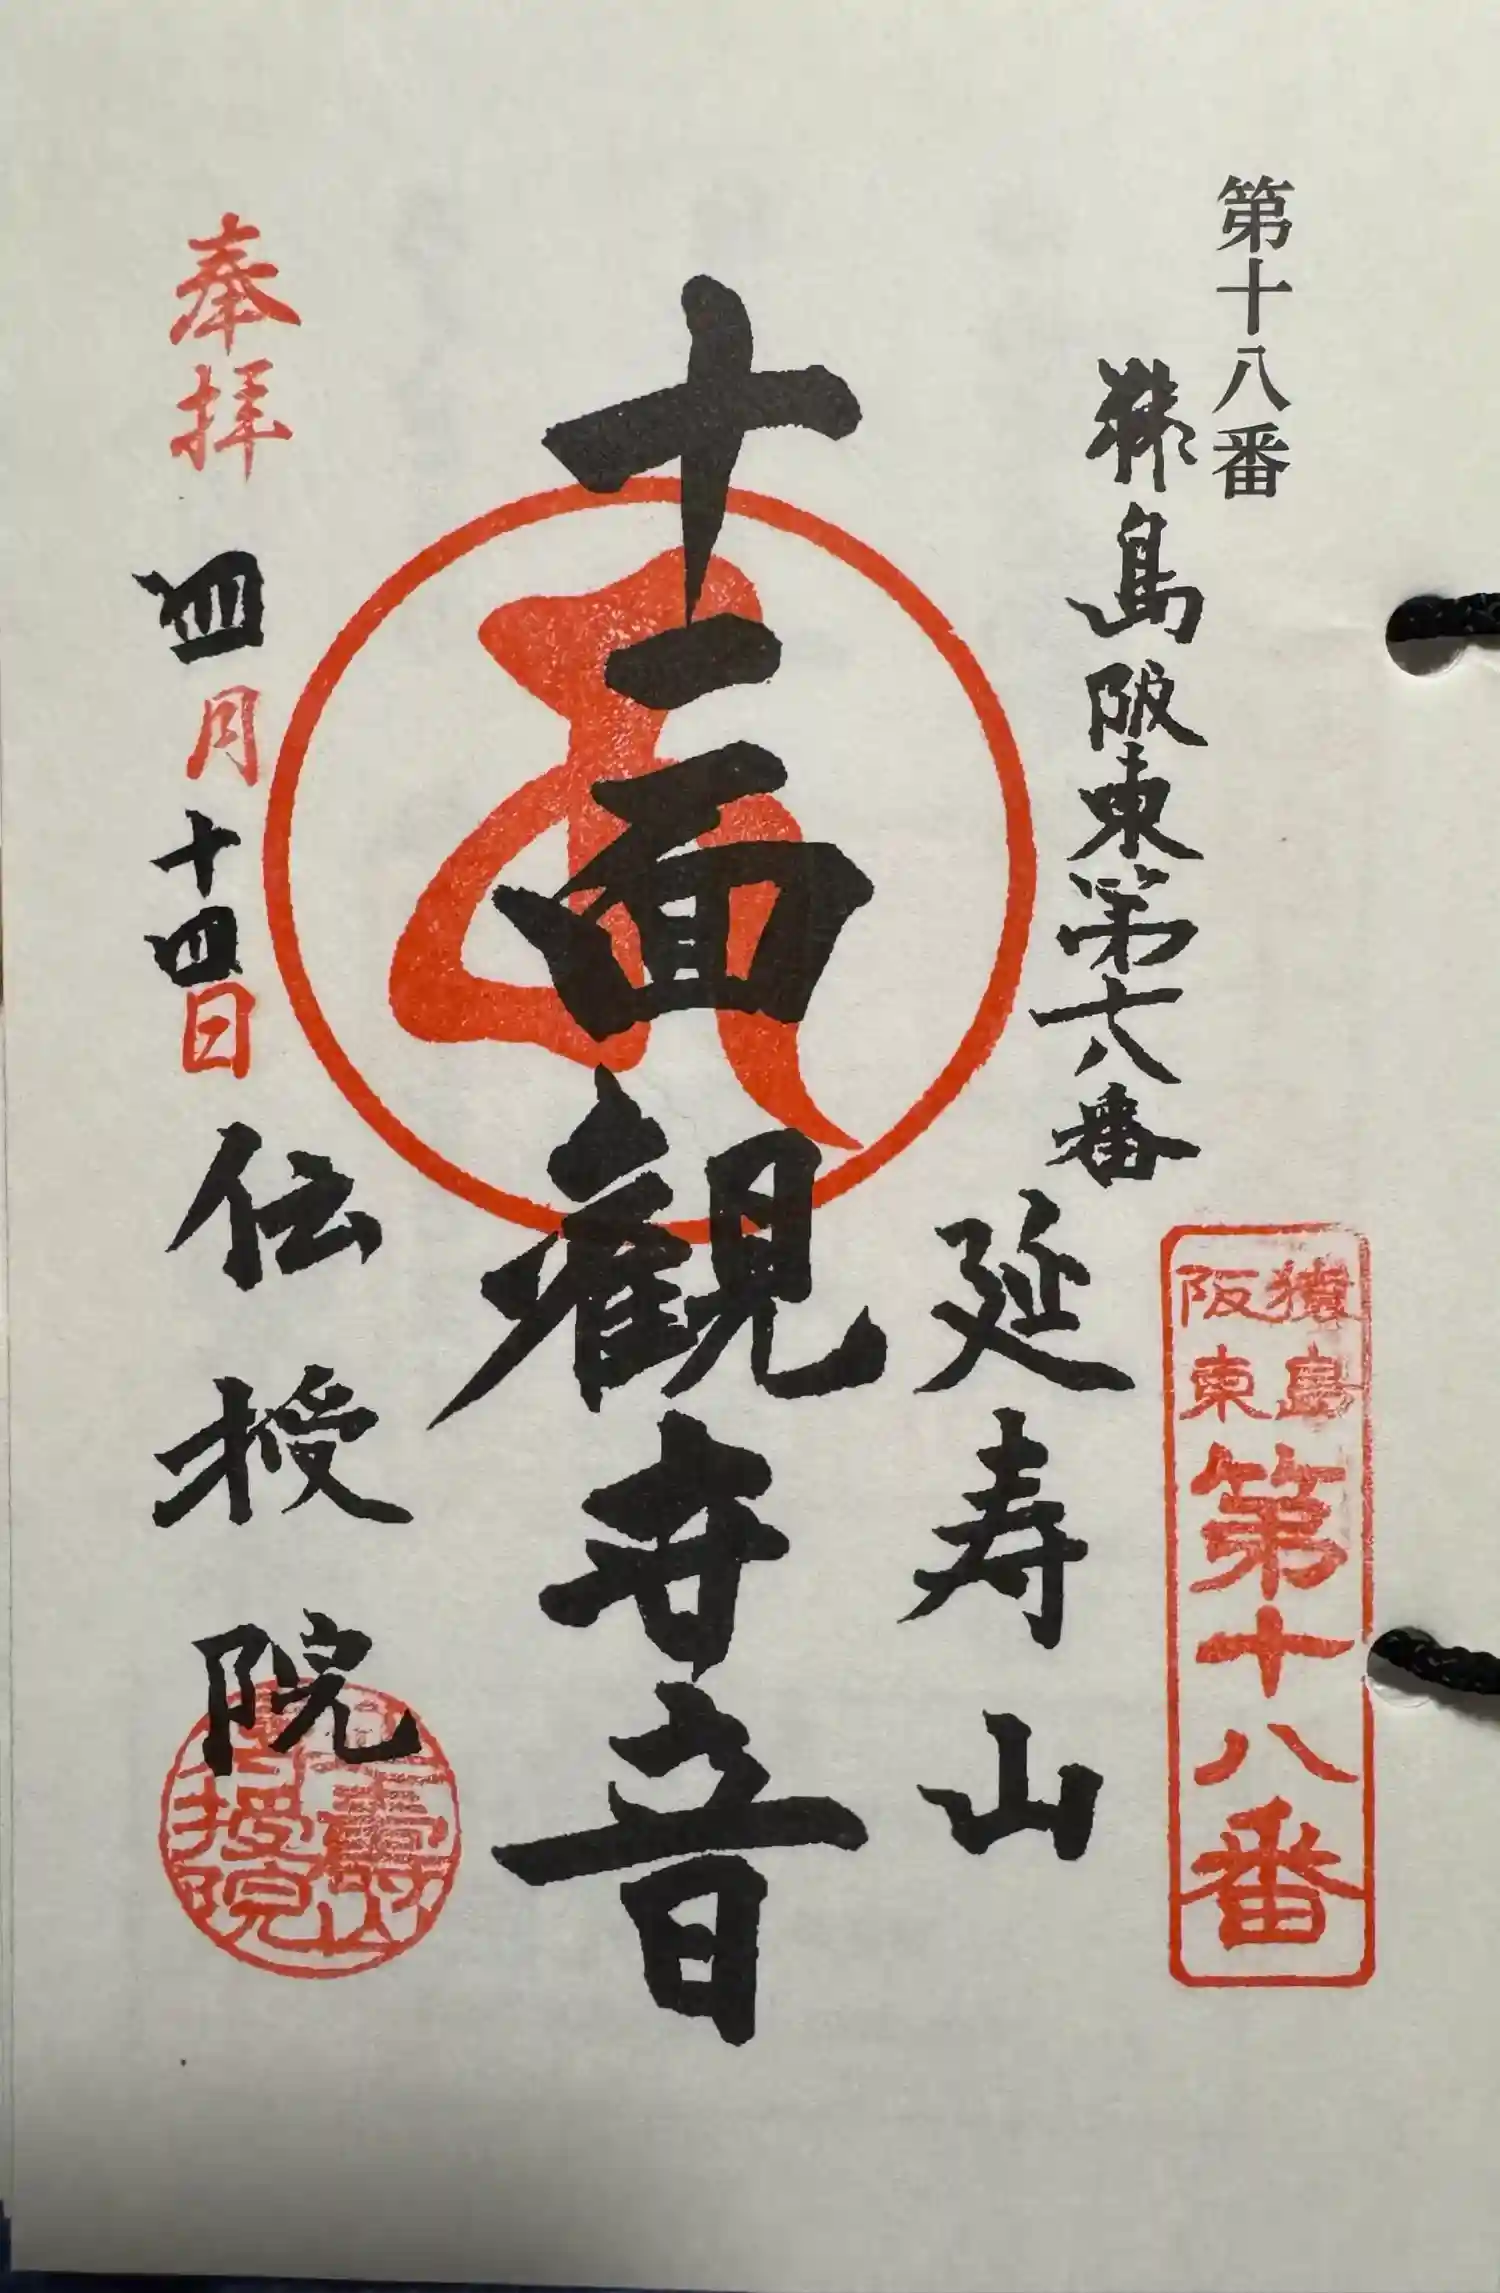 第十八番
猿島阪東第十八番
猿島
阪東
第十八番
延寿山
十一面観世音
奉拝 四月十四日
伝授院
壽山
授院